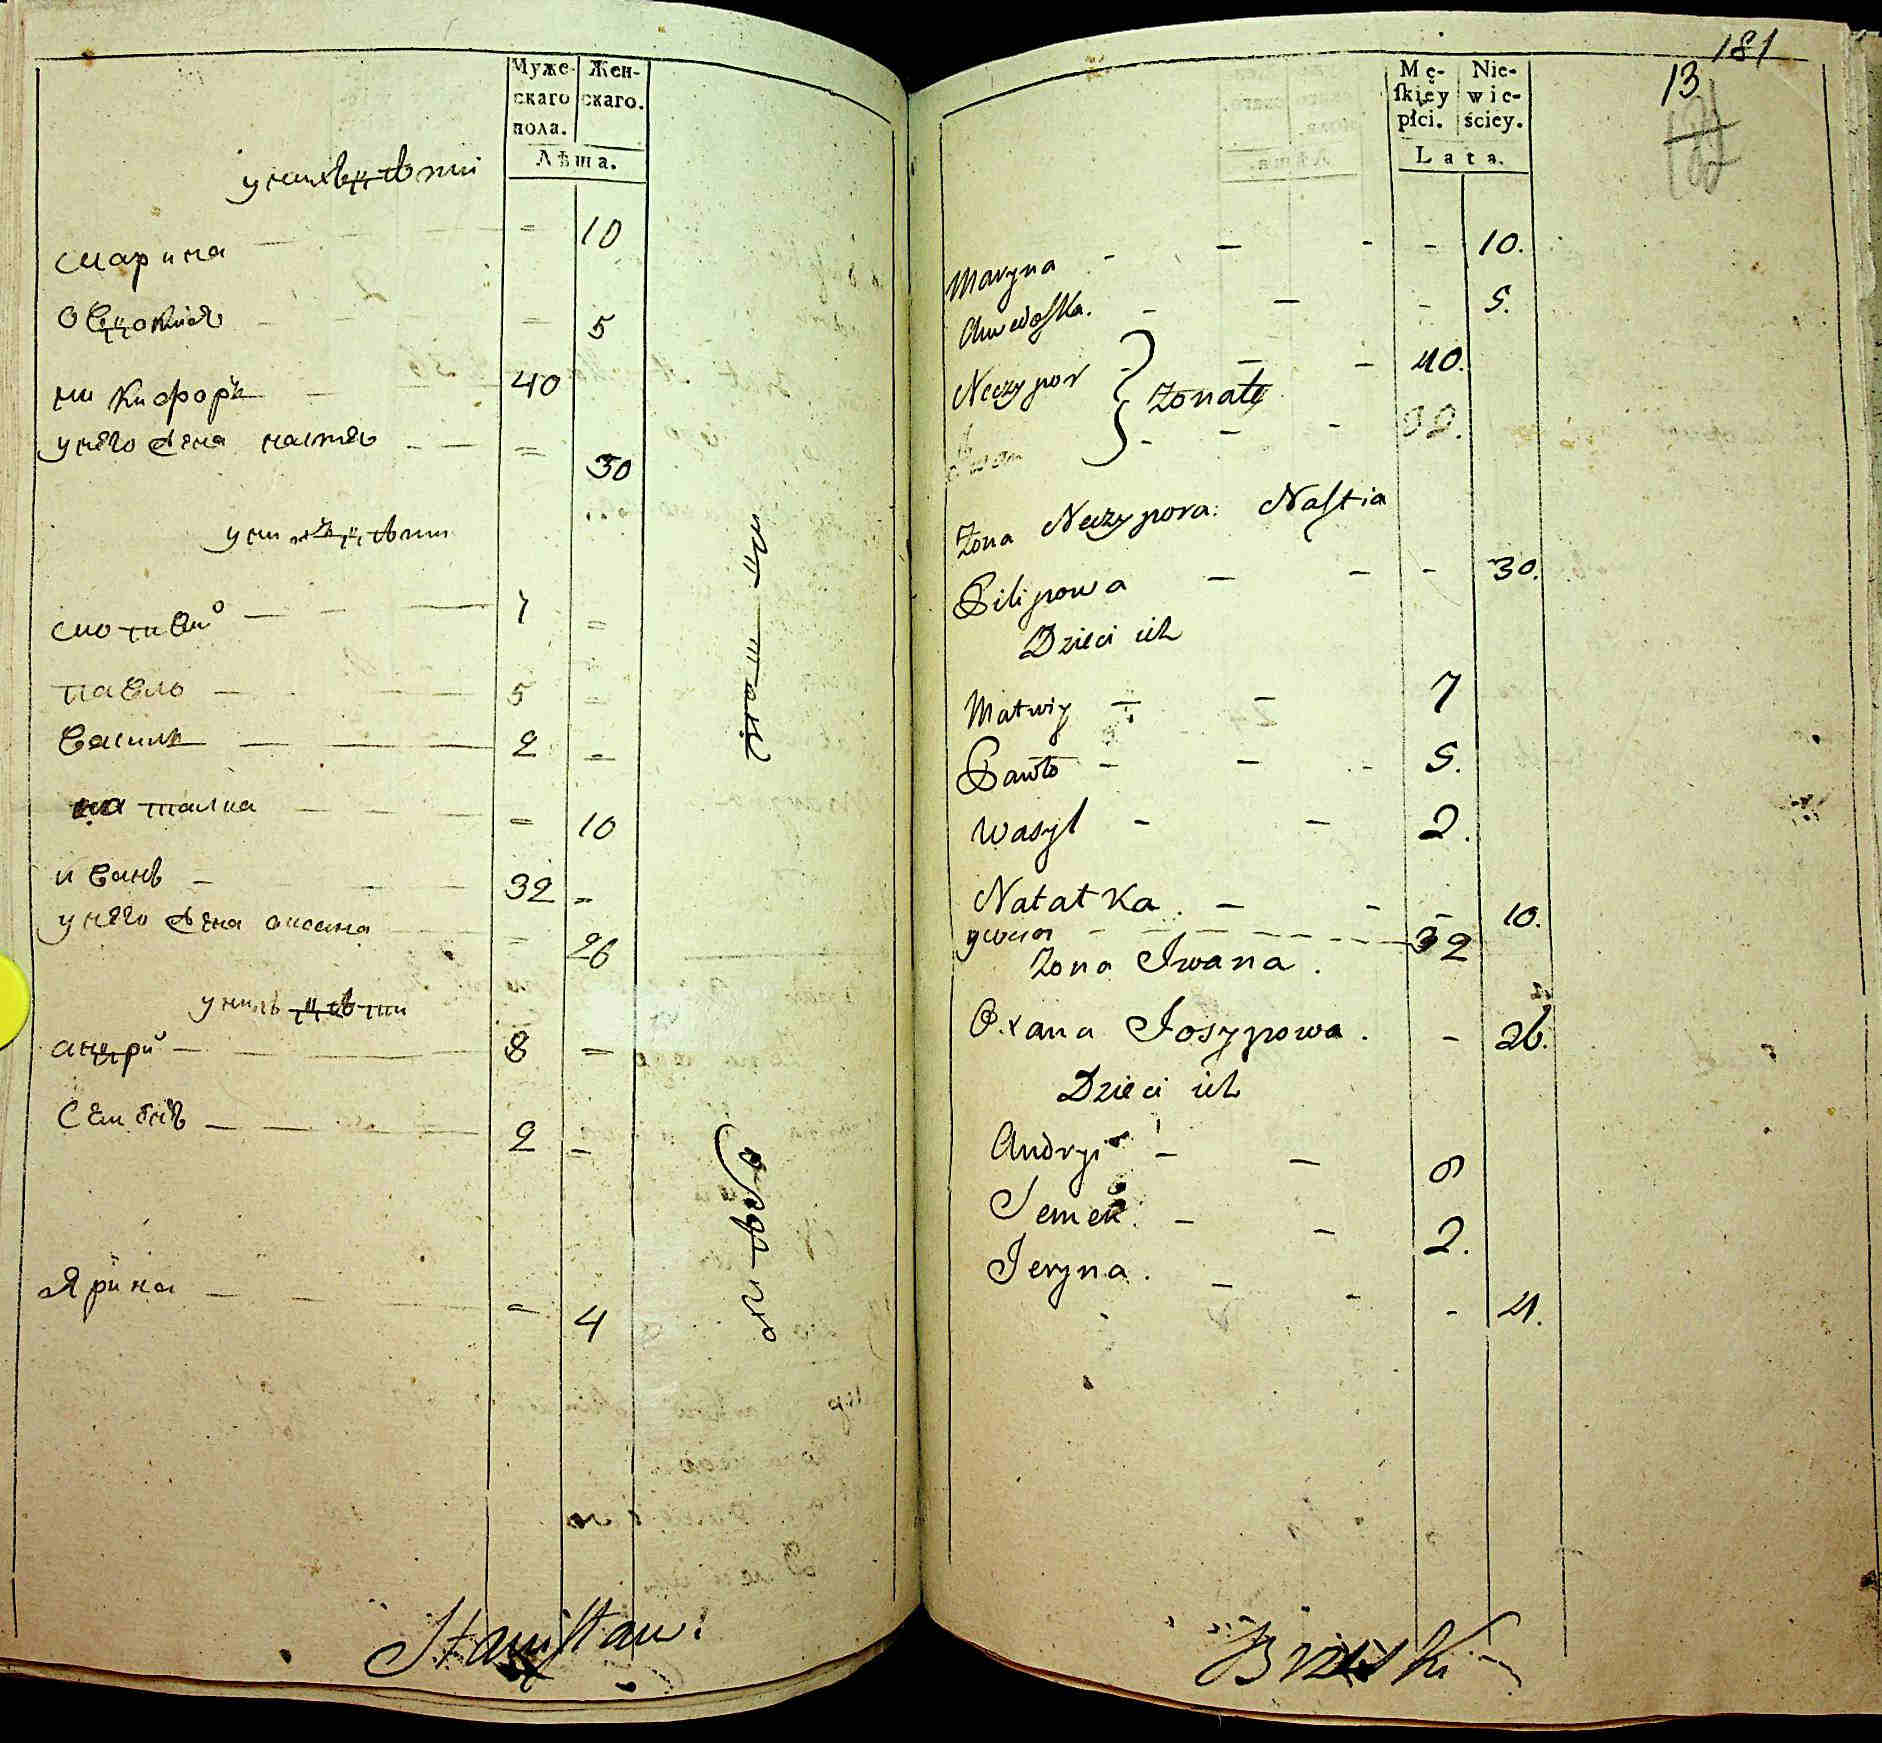 Муже-
скаго
пола.
Жен-
скаго.
Лѣта.
унихъ дѣти
марина — — — = 10
овдокия — — = 5
никифоръ — 40
унего жена настя — — = 30
унихъ дѣти
мотвий — — — 7 =
павло — — — 5 =
василь — — — 2 =
наталка — — — = 10
иванъ — — — 32 =
унего жена оксана — — = 26
унихъ дѣти
андрий — — — 8 =
семенъ — — — 2 =
Ярина — — — = 4
Stanisław
181
13
Mę-
ſkiey
płci.
Nie-
wie-
ściey.
Lata.
Maryna - — - - 10.
Chwedoſka. - — - 5.
Neczypor } żonaty — - 40.
Iwan - - - 32.
Żona Neczypora: Naſtia
Pilipowa — — - 30.
Dzieci ich
Matwiy — — 7
Pawło - — - 5.
Wasyl - — 2.
Natałka. — - - 10.
ywan - — — — - - - 32
Żona Iwana.
Oxana Josypowa. - 26.
Dzieci ich
Andryi — — 8
Semen. — — 2.
Jeryna. — - - 4.
Brzeski